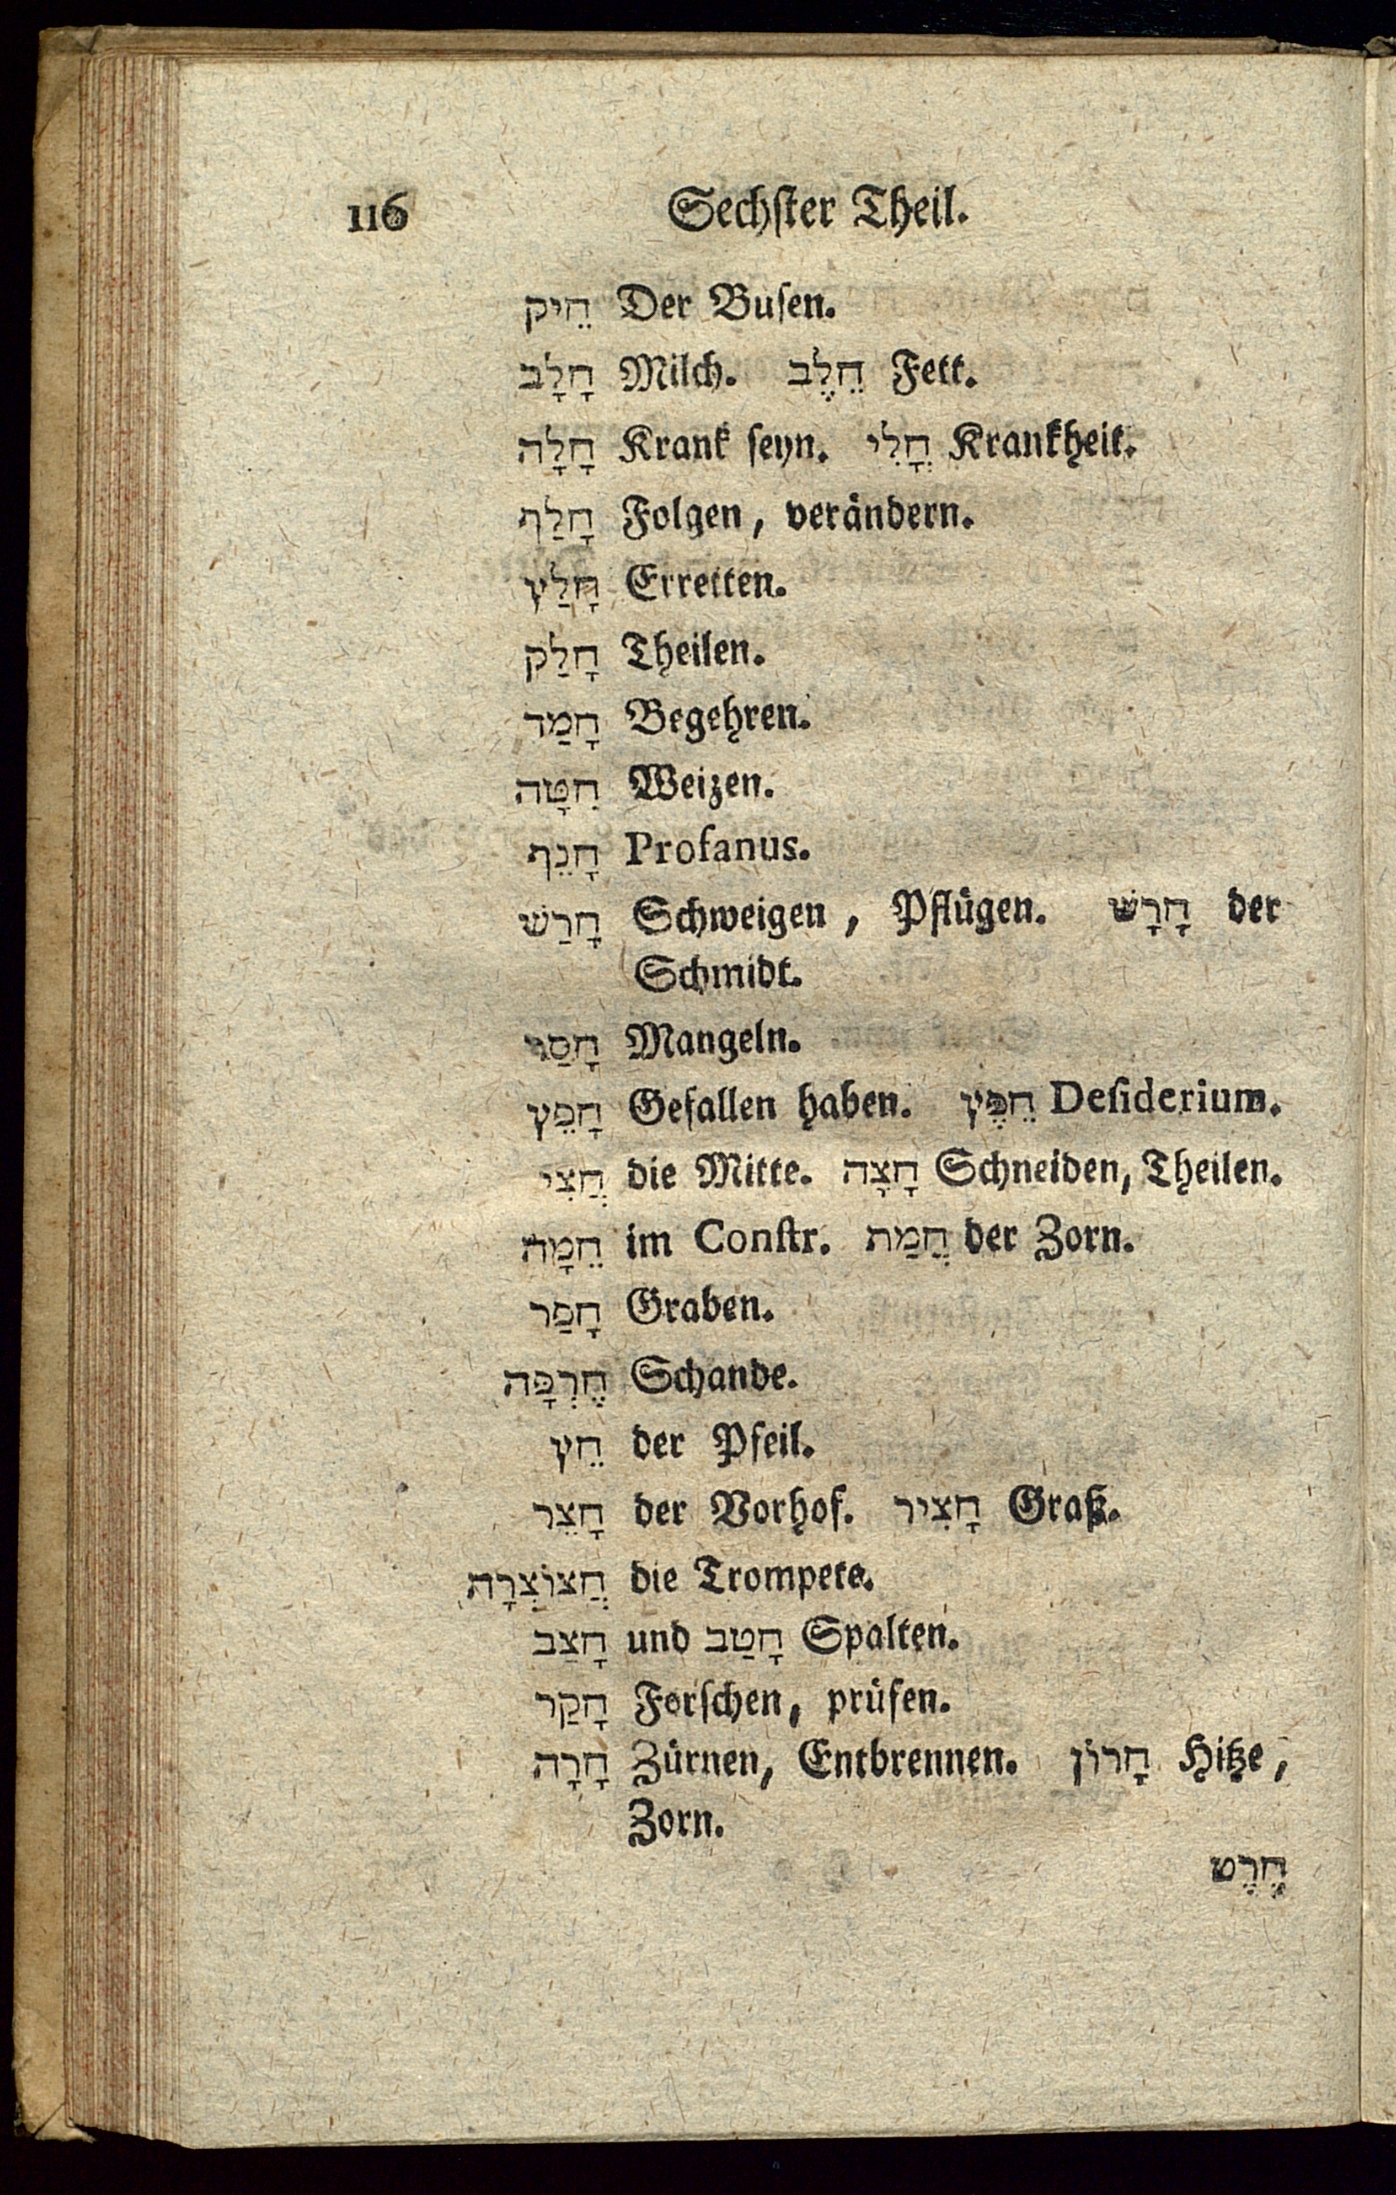 116 Sechſter Theil.
חֵיק Der Buſen.
חָלָב Milch. חֵלֶב Fett.
חָלָה Krank ſeyn. חֳלִי Krankheit.
חָלַף Folgen, verändern.
חָלַץ Erretten.
חָלַק Theilen.
חָמַד Begehren.
חִטָּה Weizen.
חָנֵף Profanus.
חָרַשׁ Schweigen, Pflügen. חָרָשׁ der
Schmidt.
חָסַר Mangeln.
חָפֵץ Gefallen haben. חֵפֶץ Deſiderium.
חֲצִי die Mitte. חָצָה Schneiden, Theilen.
חֵמָה im Conſtr. חֲמַת der Zorn.
חָפַר Graben.
חֶרְפָּה Schande.
חֵץ der Pfeil.
חָצֵר der Vorhof. חָצִיר Graß.
חֲצוֹצְרָה die Trompete.
חָצַב und חָטַב Spalten.
חָקַר Forſchen, prüfen.
חָרָה Zürnen, Entbrennen. חָרוֹן Hitze,
Zorn.
חֶרֶט